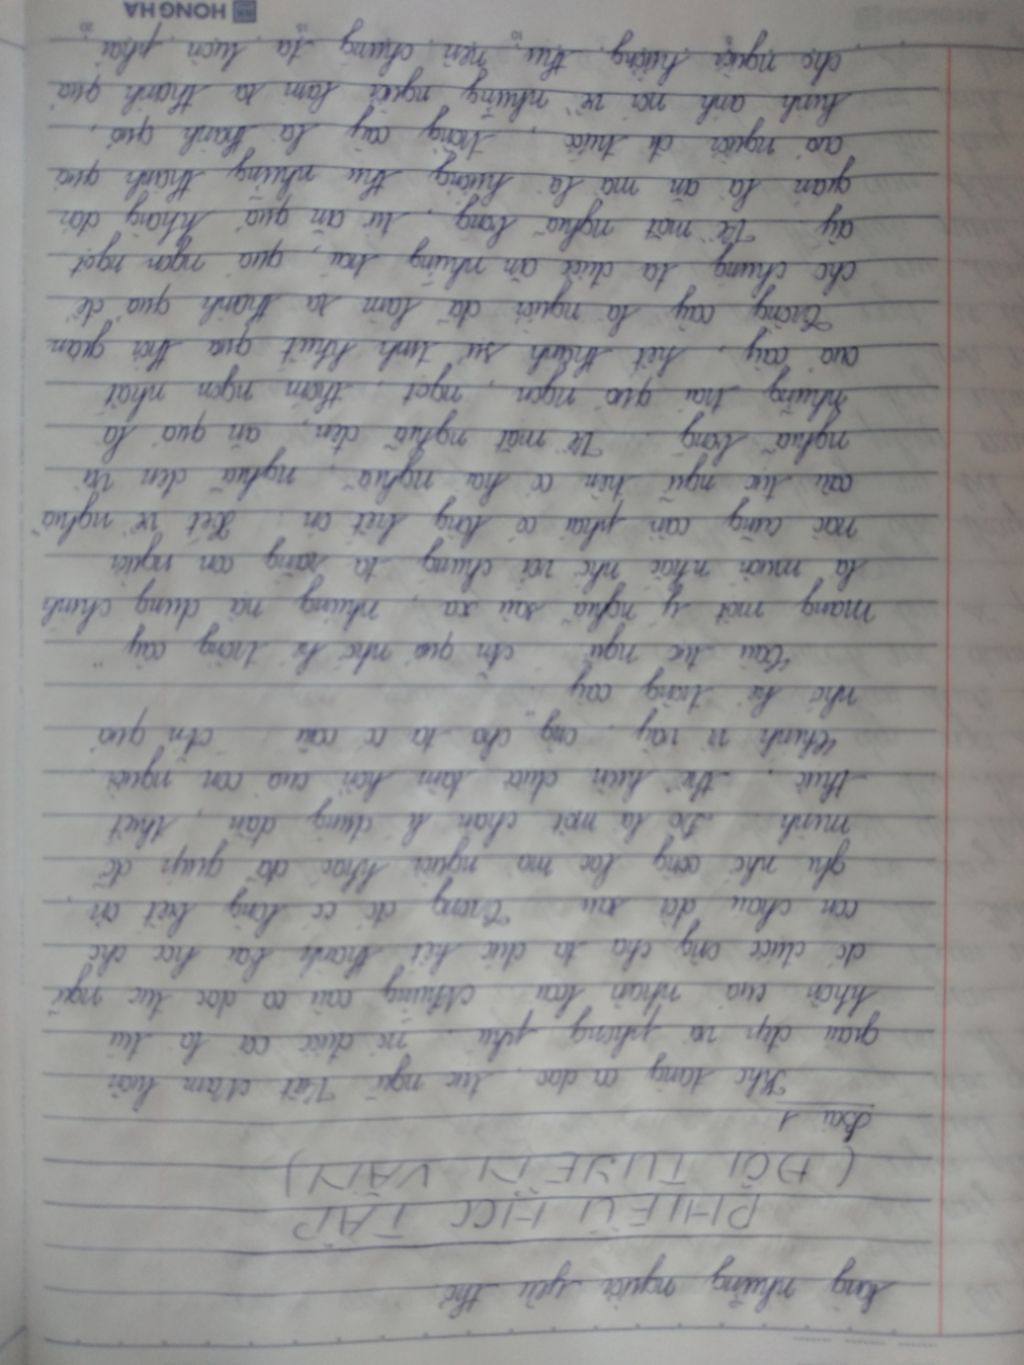 lòng những người yêu thơ
PHIẾU HỌC TẬP
(ĐỘI TUYỂN VĂN)
Bài 1
Kho tàng ca dao, tục ngữ Việt Nam luôn
giàu đẹp và phong phú, nó được coi là túi
khôn của nhân loại. Những câu ca dao tục ngữ
đó được ông cha ta đúc kết thành bài học cho
con cháu đời sau. Trong đó có lòng biết ơn,
ghi nhớ công lao mà người khác đã giúp đỡ
mình. Đó là một chân lí đúng đắn, thiết
thực, thể hiện được tâm hồn của con người.
Chính vì vậy, ông cha ta có câu "Ăn quả
nhớ kẻ trồng cây".
Câu tục ngữ "Ăn quả nhớ kẻ trồng cây"
mang một ý nghĩa sâu xa, nhưng nội dung chính
là muốn nhắc nhở với chúng ta rằng con người
nào cũng cần phải có lòng biết ơn. Xét về nghĩa
câu tục ngữ trên có hai nghĩa, nghĩa đen và
nghĩa bóng. Về mặt nghĩa đen, ăn quả là
những trái quả ngon, ngọt, thơm ngon nhất
của cây, kết thành sự tinh khiết qua thời gian
Trồng cây là người đã làm ra thành quả để
cho chúng ta được ăn những trái, quả ngon ngọt
ấy. Về mặt nghĩa bóng, từ ăn quả không đơn
giản là ăn mà là hưởng thụ những thành quả
của người đi trước, trồng cây là thành quả,
hình ảnh nói về những người làm ra thành quả
cho người hưởng thụ nên chúng ta luôn phải
HONG HA